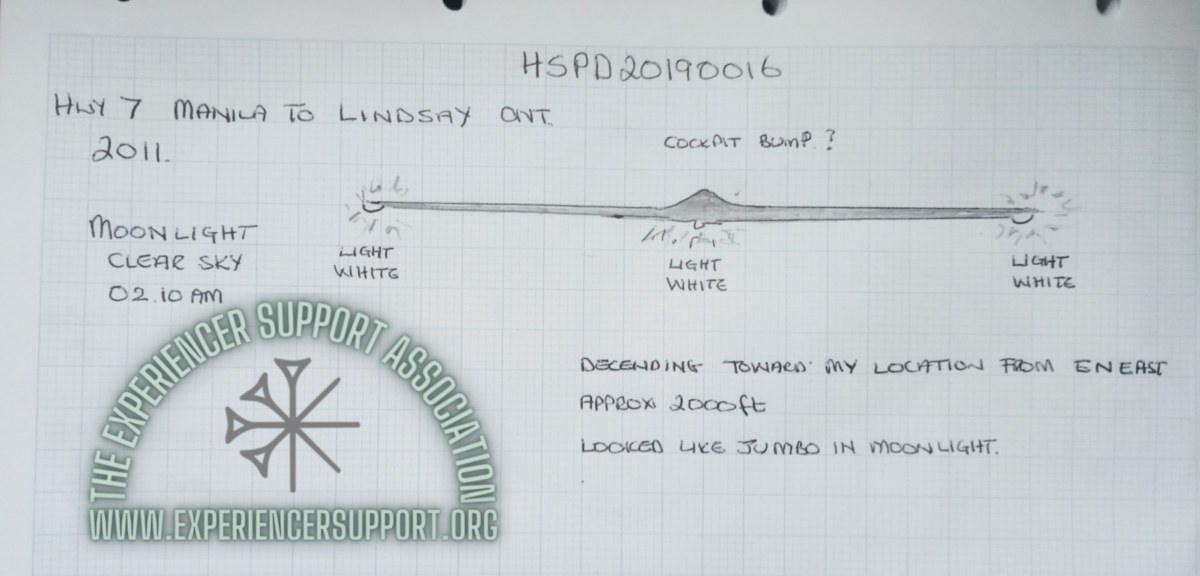 HSPD20190016
HWY 7 MANILA TO LINDSAY ONT.
2011.
COCKPIT BUMP ?
MOONLIGHT
CLEAR SKY
02.10 AM
LIGHT
WHITE
LIGHT
WHITE
LIGHT
WHITE
DECENDING TOWARD MY LOCATION FROM ENEAST
APPROX 2000ft
LOOKED LIKE JUMBO IN MOONLIGHT.
THE EXPERIENCER SUPPORT ASSOCIATION
WWW.EXPERIENCERSUPPORT.ORG